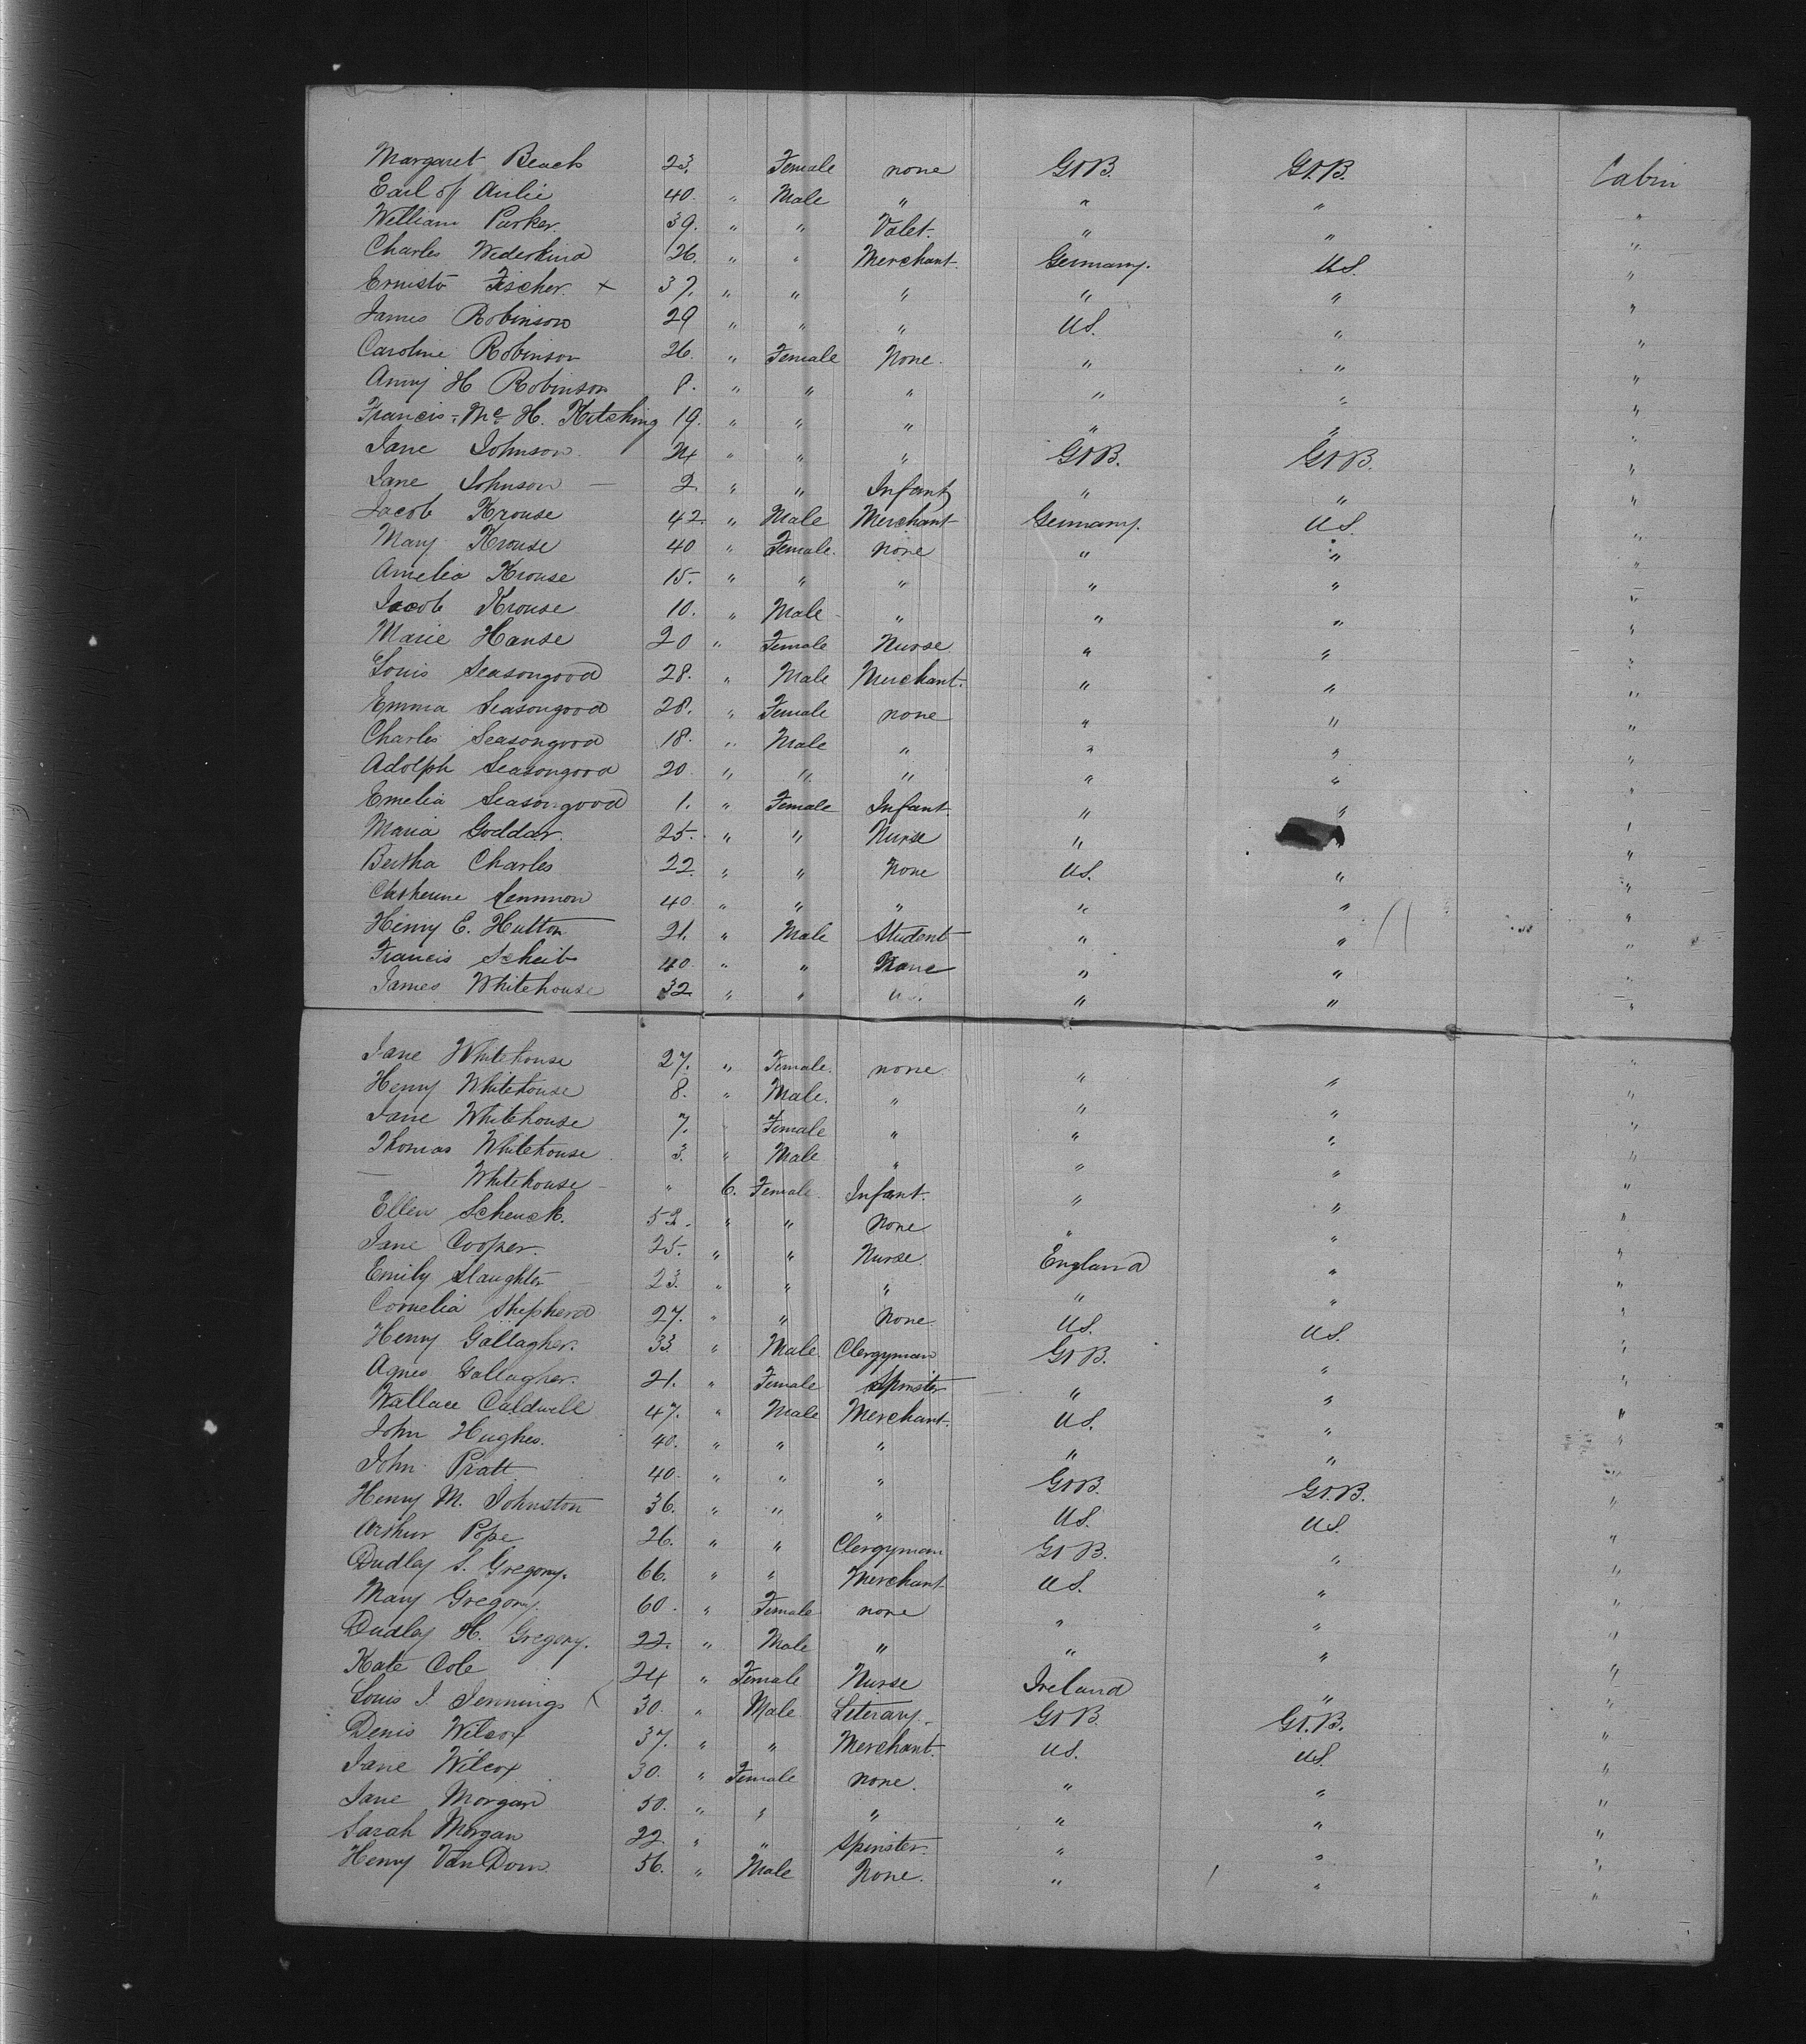 Margaret Beach 23. Female none Gt B. Gt. B. Cabin
Earl of Airlie 40. " Male " " " "
William Parker. 39. " " Valet. " " "
Charles Wederkind 26. " " Merchant. Germany. US. "
Ernisto Fischer. x 37. " " " " " "
James Robinson 29 " " " US. " "
Caroline Robinson 26. " Female None. " " "
Amy H Robinson 8. " " " " " "
Francis Mc H. Kitching 19. " " " " " "
Jane Johnson. 24 " " " Gt B. Gt B. "
Jane Johnson — 2. " " Infant " " "
Jacob Krouse 42. " Male Merchant Germany. US. "
Mary Krouse 40 " Female. none " " "
Amelia Krouse 15. " " " " " "
Jacob Krouse 10. " Male " " " "
Marie Hanse 20 " Female Nurse " " "
Louis Seasongood 28. " Male Merchant. " " "
Emma Seasongood 28. " Female none " " "
Charles Seasongood 18. " Male " " " "
Adolph Seasongood 20 " " " " " "
Emelia Seasongood 1. " Female Infant. " " "
Maria Goddar. 25. " " Nurse " "
Bertha Charles 22. " " None US. " "
Catherine Lemmon 40. " " " " " "
Henry E. Hutton 21. " Male Student " " "
Francis Scheib 40. " " None " " "
James Whitehouse 32 " " " " "
Jane Whitehouse 27. " Female. none " " "
Henry Whitehouse 8. " Male. " " " "
Jane Whitehouse 7. Female " " " "
Thomas Whitehouse 3. " Male " " " "
— Whitehouse — " 6. Female. Infant. " " "
Ellen Schenck. 52. " " None " " "
Jane Cooper. 25. " " Nurse. England " "
Emily Slaughter 23. " " " " " "
Cornelia Shepherd 27. " " None US. US. "
Henry Gallagher. 33 " Male. Clergyman Gt B. " "
Agnes Gallagher. 21. " Female Spinster " " "
Wallace Caldwell 47. " Male Merchant. US. " "
John Hughes. 40. " " " " " "
John Pratt 40. " " " Gt B. Gt. B. "
Henry M. Johnston 36. " " " US. US. "
Arthur Pope 26. " " Clergyman Gt B. " "
Dudley S. Gregory. 66. " " Merchant US. " "
Mary Gregory. 60. " Female none " " "
Dudley H. Gregory. 22. " Male " " " "
Kate Cole 24 " Female Nurse Ireland " "
Louis J. Jennings x 30. " Male Literary. Gt B Gt. B. "
Denis Wilcox 37. " " Merchant. US. US. "
Jane Wilcox 30. " Female none. " " "
Jane Morgan 50. " " " " " "
Sarah Morgan 22 " " Spinster. " " "
Henry Van Dorn. 56. " Male None. " " "